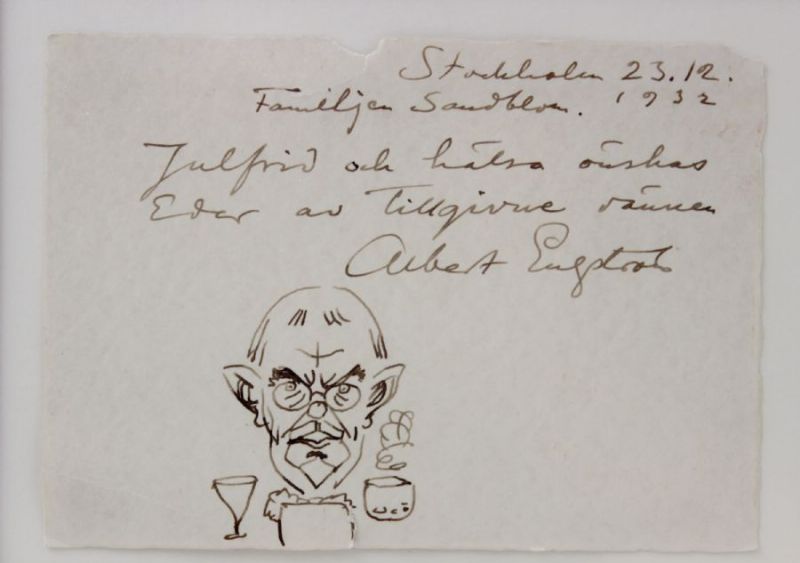 Stockholm 23.12.
Familjen Sandblom. 1932
Julfrid och hälsa önskas
Eder av tillgivne vännen
Albert Engström